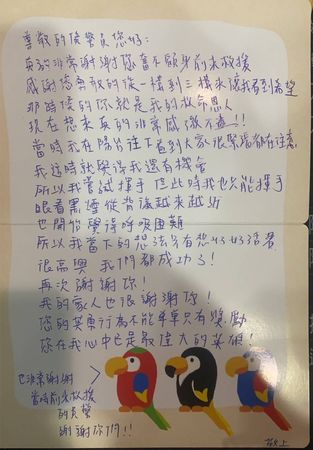 尊敬的侯警員您好：
真的非常謝謝你奮不顧身前來救援
感謝您勇敢的從一樓到三樓來讓我看到希望
那時候的你就是我的救命恩人
現在想來真的非常感激不盡！！
當時我在陽台往下看到大家很緊張都在注意
我這時就覺得我還有機會
所以我嘗試揮手但此時我也只能揮手
眼看黑煙從背後越來越近
也開始覺得呼吸困難
所以我當下的想法只有想好好活著
很高興 我們都成功了！
再次謝謝你！
我的家人也很謝謝你！
您的英勇行為不能單單只有獎勵
您在我心中也是最偉大的英雄！
也非常謝謝
當時前來救援
的員警
謝謝你們！！
敬上